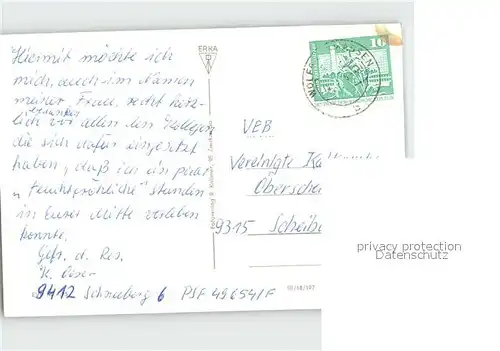 Hiermit möchte ich
mich, auch im Namen
meiner Frau, recht herz-
lich bedanken bei allen den Kollegen
die sich dafür eingesetzt
haben, daß ich ein paar
"feuchtfröhliche" Stunden
in Eurer Mitte verleben
konnte.
Gefr. d. Res.
9412 Schneeberg 6 PSF 49654/F
ERKA
10
VEB
Vereinigte
Oberschei
9315 Scheibe
privacy protection
Datenschutz